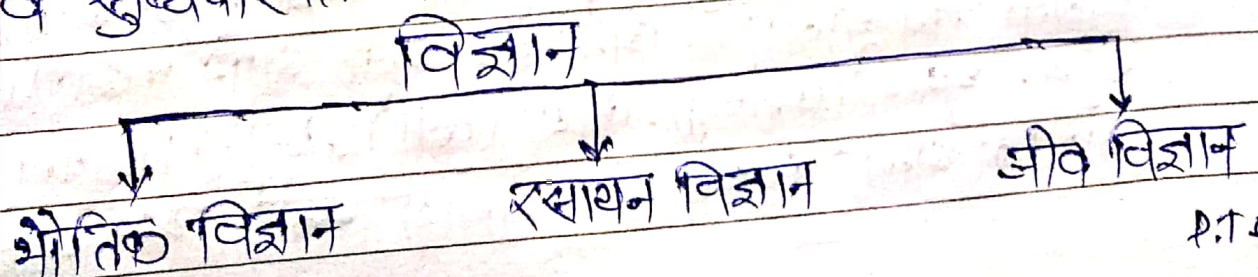 व
विज्ञान
भौतिक विज्ञान रसायन विज्ञान जीव विज्ञान
P.T.